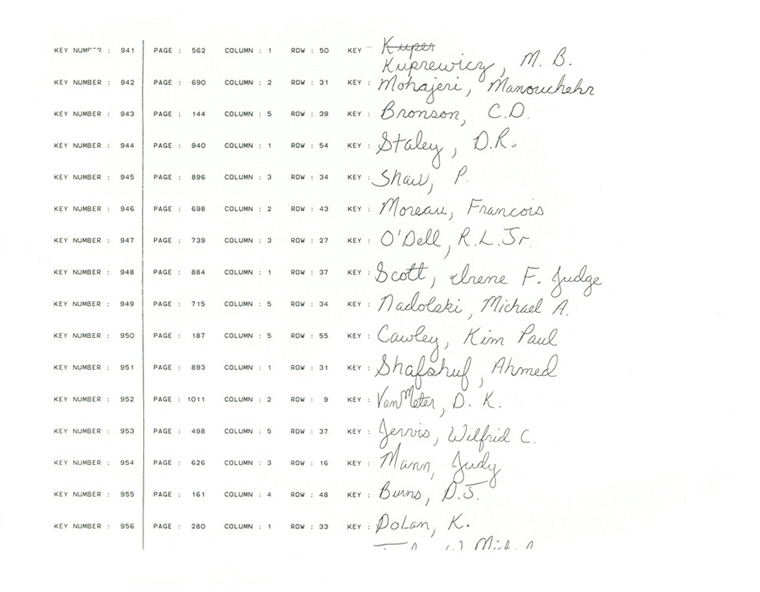 KEY NUMBER : 941 PAGE : 562 COLUMN : 1 ROW : 50 KEY - Kuper
Kuprewicz, M. B.
KEY NUMBER : 942 PAGE : 690 COLUMN : 2 ROW : 31 KEY : Mohajeri, Manouchehr
KEY NUMBER : 943 PAGE : 144 COLUMN : 5 ROW : 39 KEY : Bronson, C.D.
KEY NUMBER : 944 PAGE : 940 COLUMN : 1 ROW : 54 KEY : Staley, D.R.
KEY NUMBER : 945 PAGE : 896 COLUMN : 3 ROW : 34 KEY : Shaw, P.
KEY NUMBER : 946 PAGE : 698 COLUMN : 2 ROW : 43 KEY : Moreau, Francois
KEY NUMBER : 947 PAGE : 739 COLUMN : 3 ROW : 27 KEY : O'Dell, R.L. Jr.
KEY NUMBER : 948 PAGE : 884 COLUMN : 1 ROW : 37 KEY : Scott, Irene F. Judge
KEY NUMBER : 949 PAGE : 715 COLUMN : 5 ROW : 34 KEY : Nadolski, Michael A.
KEY NUMBER : 950 PAGE : 187 COLUMN : 5 ROW : 55 KEY : Cawley, Kim Paul
KEY NUMBER : 951 PAGE : 893 COLUMN : 1 ROW : 31 KEY : Shafshuf, Ahmed
KEY NUMBER : 952 PAGE : 1011 COLUMN : 2 ROW : 9 KEY : VanMeter, D. K.
KEY NUMBER : 953 PAGE : 498 COLUMN : 5 ROW : 37 KEY : Jervis, Wilfrid C.
KEY NUMBER : 954 PAGE : 626 COLUMN : 3 ROW : 16 KEY : Mann, Judy
KEY NUMBER : 955 PAGE : 161 COLUMN : 4 ROW : 48 KEY : Burns, D.J.
KEY NUMBER : 956 PAGE : 280 COLUMN : 1 ROW : 33 KEY : Dolan, K.